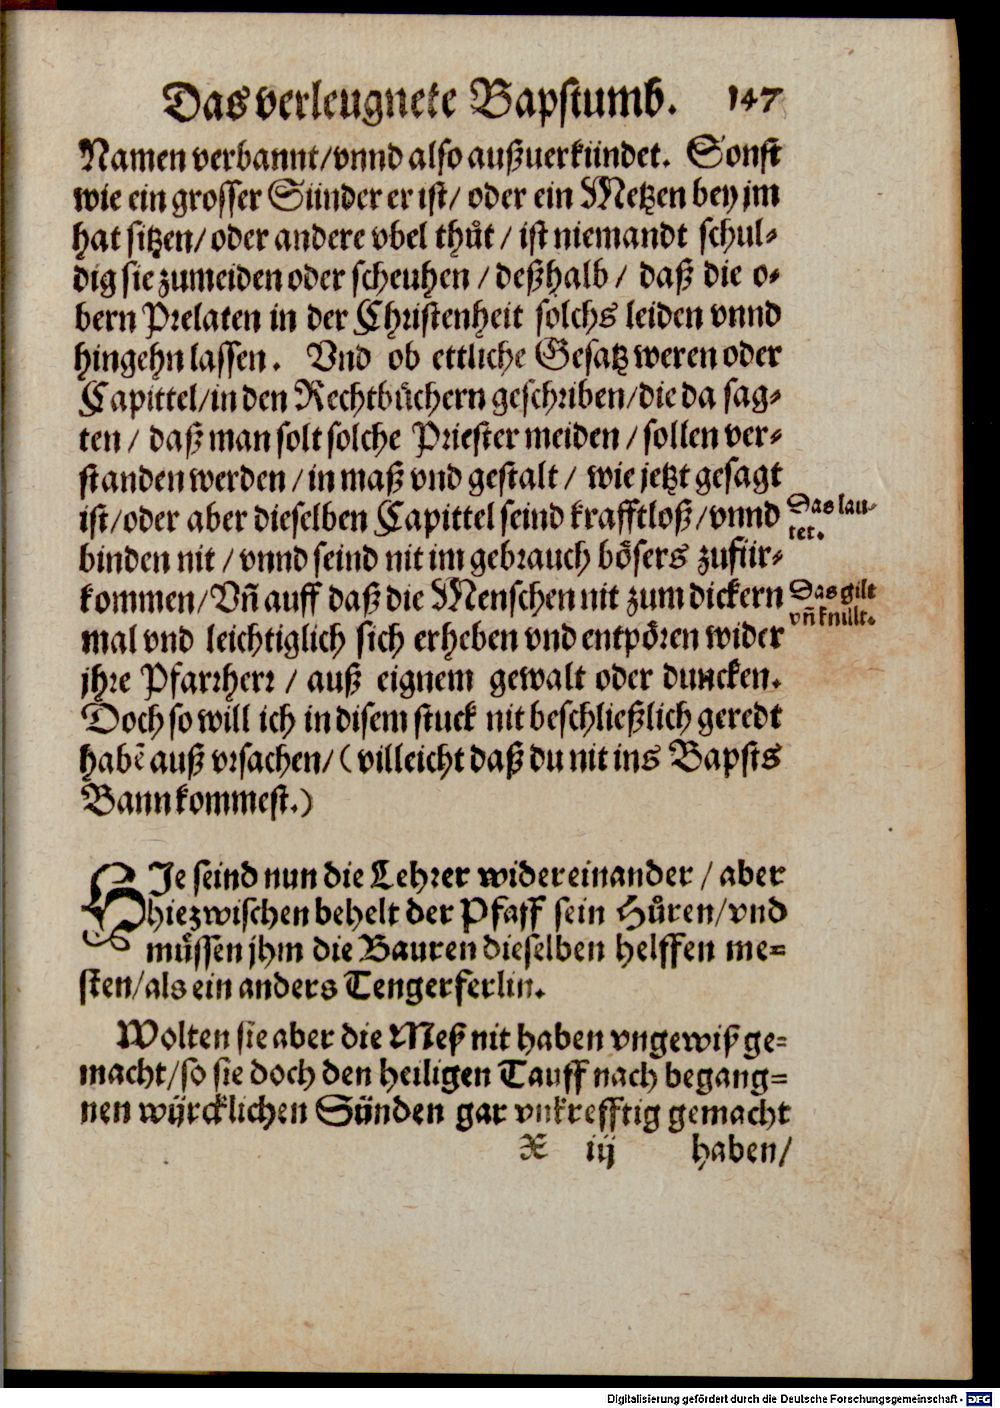 Das verleugnete Bapstumb. 147
Namen verbannt/vnnd also außuerkündet. Sonst
wie ein grosser Sünder er ist/ oder ein Metzen bey jm
hat sitzen/ oder andere vbel thůt / ist niemandt schul-
dig sie zumeiden oder scheuhen / deßhalb / daß die o-
bern Prelaten in der Christenheit solchs leiden vnnd
hingehn lassen. Vnd ob ettliche Gesatz weren oder
Capittel/in den Rechtbůchern geschriben/die da sag-
ten / daß man solt solche Priester meiden / sollen ver-
standen werden / in maß vnd gestalt / wie jetzt gesagt
ist/oder aber dieselben Capittel seind krafftloß/vnnd
Das lau-
tet.
binden nit / vnnd seind nit im gebrauch bösers zufür-
kommen/Vñ auff daß die Menschen nit zum dickern
Das gilt
vñ knillt.
mal vnd leichtiglich sich erheben vnd entpören wider
jhre Pfarrherr / auß eignem gewalt oder duncken.
Doch so will ich in disem stuck nit beschließlich geredt
habẽ auß vrsachen/ (villeicht daß du nit ins Bapsts
Bann kommest.)
HIe seind nun die Lehrer widereinander / aber
hiezwischen behelt der Pfaff sein Hůren/vnd
müssen jhm die Bauren dieselben helffen me-
sten/als ein anders Tengerferlin.
Wolten sie aber die Meß nit haben vngewiß ge-
macht/so sie doch den heiligen Tauff nach begang-
nen würcklichen Sünden gar vnkrefftig gemacht
X iij haben/
Digitalisierung gefördert durch die Deutsche Forschungsgemeinschaft - DFG